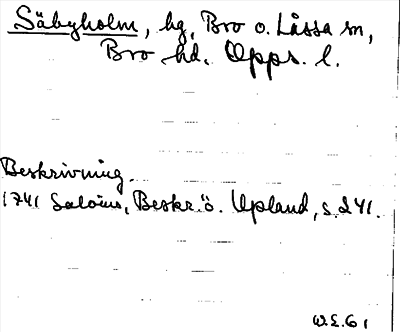 Säbyholm, hg, Bro o. Låssa sn,
Bro hd. Upps. l.
Beskrivning.
1741 Salvius, Beskr. ö. Upland, s. 241.
W.E. 61